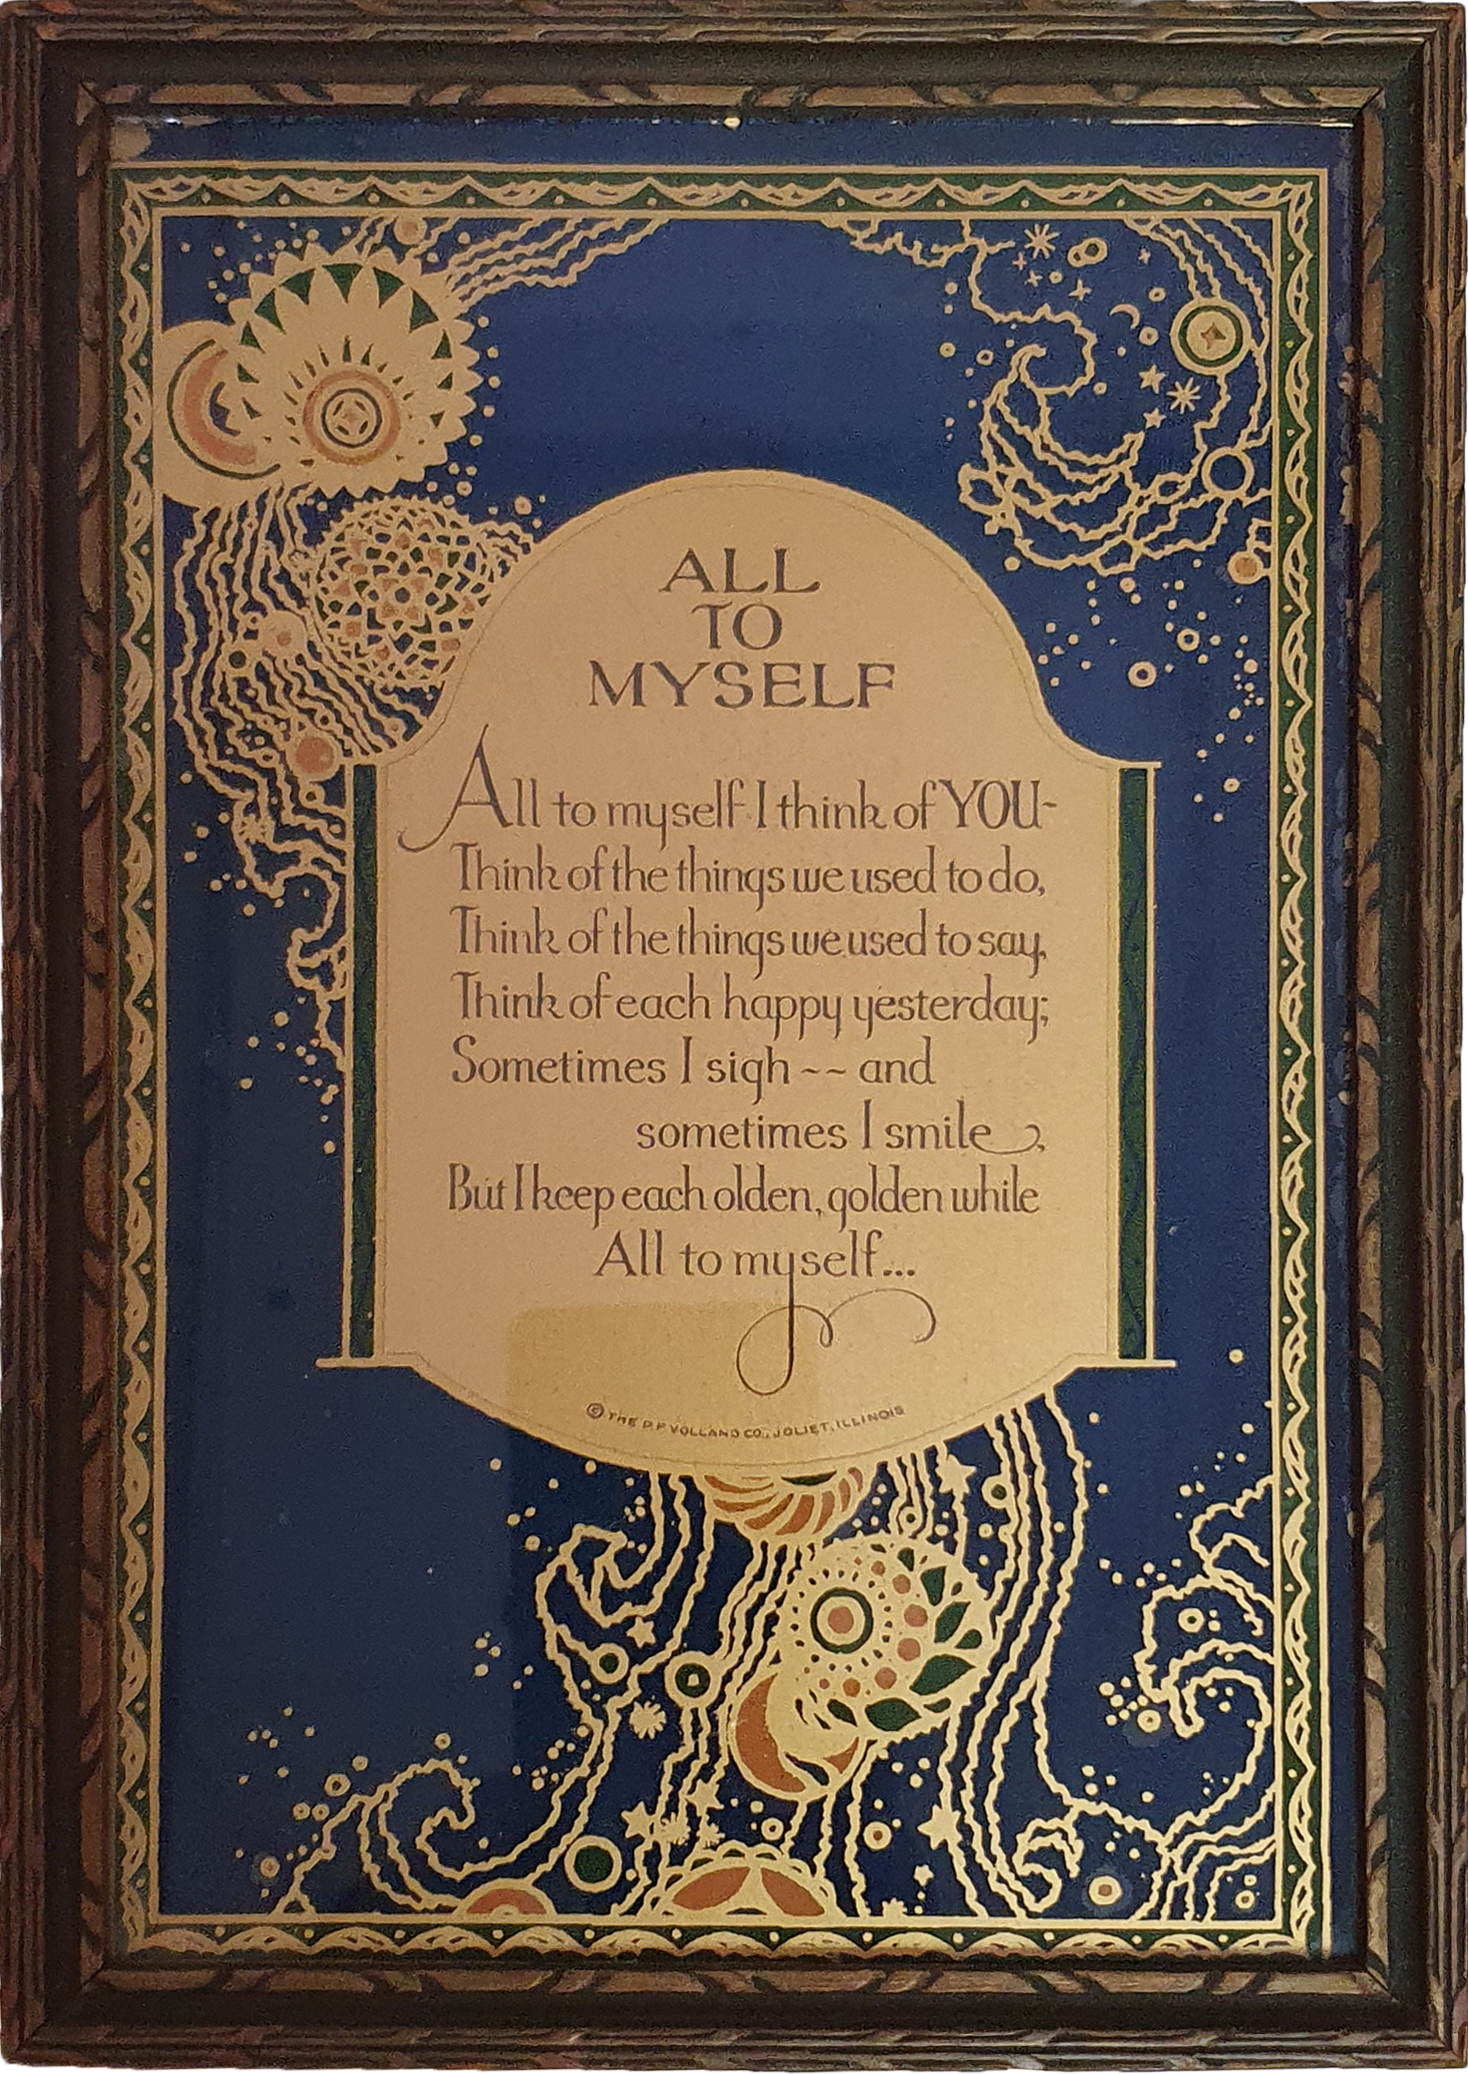 ALL
TO
MYSELF
All to myself I think of YOU-
Think of the things we used to do,
Think of the things we used to say,
Think of each happy yesterday;
Sometimes I sigh -- and
sometimes I smile,
But I keep each olden, golden while
All to myself...
© THE P.F. VOLLAND CO., JOLIET, ILLINOIS